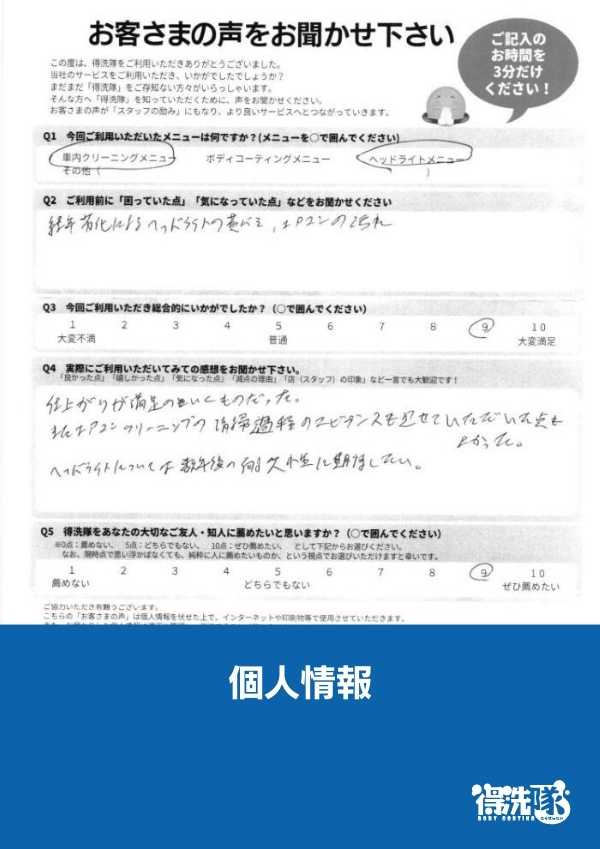 お客さまの声をお聞かせ下さい
ご記入の
お時間を
3分だけ
ください!
この度は、得洗隊をご利用いただきありがとうございました。
当社のサービスをご利用いただき、いかがでしたでしょうか?
まだまだ「得洗隊」をご存知ない方々がいらっしゃいます。
そんな方へ「得洗隊」を知っていただくために、声をお聞かせください。
お客さまの声が「スタッフの励み」にもなり、より良いサービスへとつながっていきます。
Q1 今回ご利用いただいたメニューは何ですか?(メニューを○で囲んでください)
車内クリーニングメニュー ボディコーティングメニュー ヘッドライトメニュー
その他( )
Q2 ご利用前に「困っていた点」「気になっていた点」などをお聞かせください
経年劣化によるヘッドライトの黄ばみ、エアコンの汚れ
Q3 今回ご利用いただき総合的にいかがでしたか?(○で囲んでください)
1 2 3 4 5 6 7 8 9 10
大変不満 普通 大変満足
Q4 実際にご利用いただいてみての感想をお聞かせ下さい。
「良かった点」「嬉しかった点」「気になった点」「減点の理由」「店(スタッフ)の印象」など一言でも大歓迎です!
仕上がりが満足のいくものだった。
またエアコンクリーニングの清掃過程のエビデンスも見せていただいた点も
よかった。
ヘッドライトについては数年後の耐久性に期待したい。
Q5 得洗隊をあなたの大切なご友人・知人に薦めたいと思いますか?(○で囲んでください)
※0点:薦めない、 5点:どちらでもない、 10点:ぜひ薦めたい、 として下記からお選びください。
なお、現時点で思い浮かばなくても、純粋に人に薦めたいものか、という視点でお選びいただけますと幸いです。
1 2 3 4 5 6 7 8 9 10
薦めない どちらでもない ぜひ薦めたい
ご協力いただき有難うございます。
こちらの「お客さまの声」は個人情報を伏せた上で、インターネットや印刷物等で使用させていただきます。
個人情報
得洗隊
BODY COATING